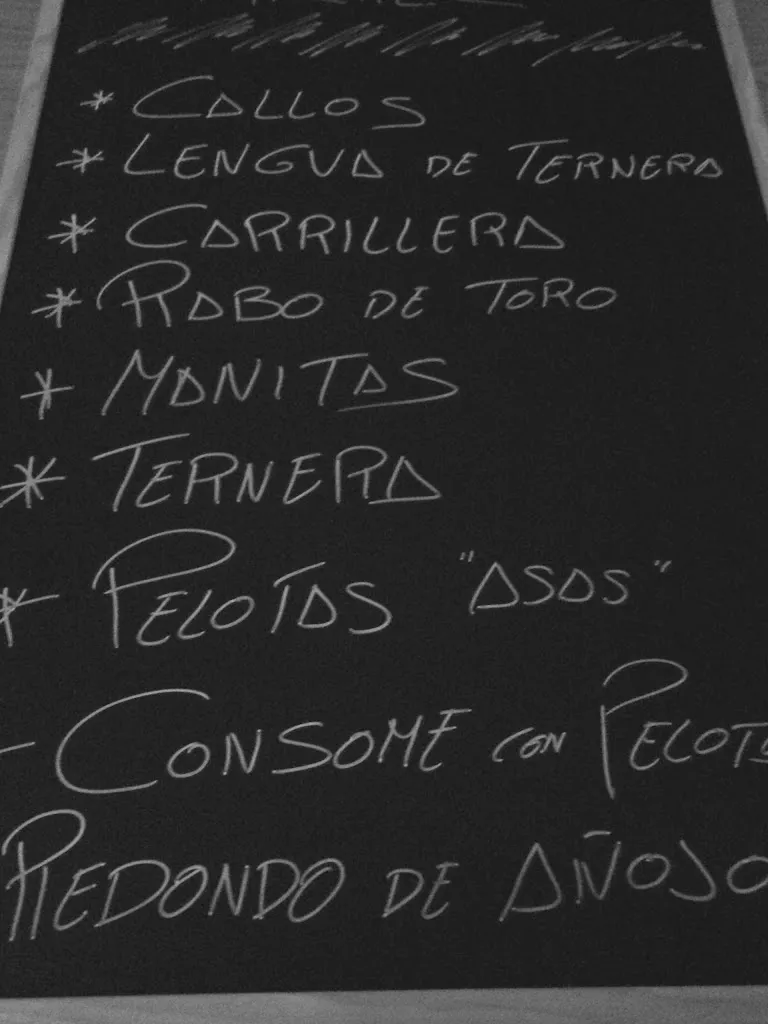 * CALLOS
* LENGUA DE TERNERA
* CARRILLERA
* RABO DE TORO
* MANITAS
* TERNERA
* PELOTAS "ASAS"
- CONSOME CON PELOTA
REDONDO DE AÑOJO